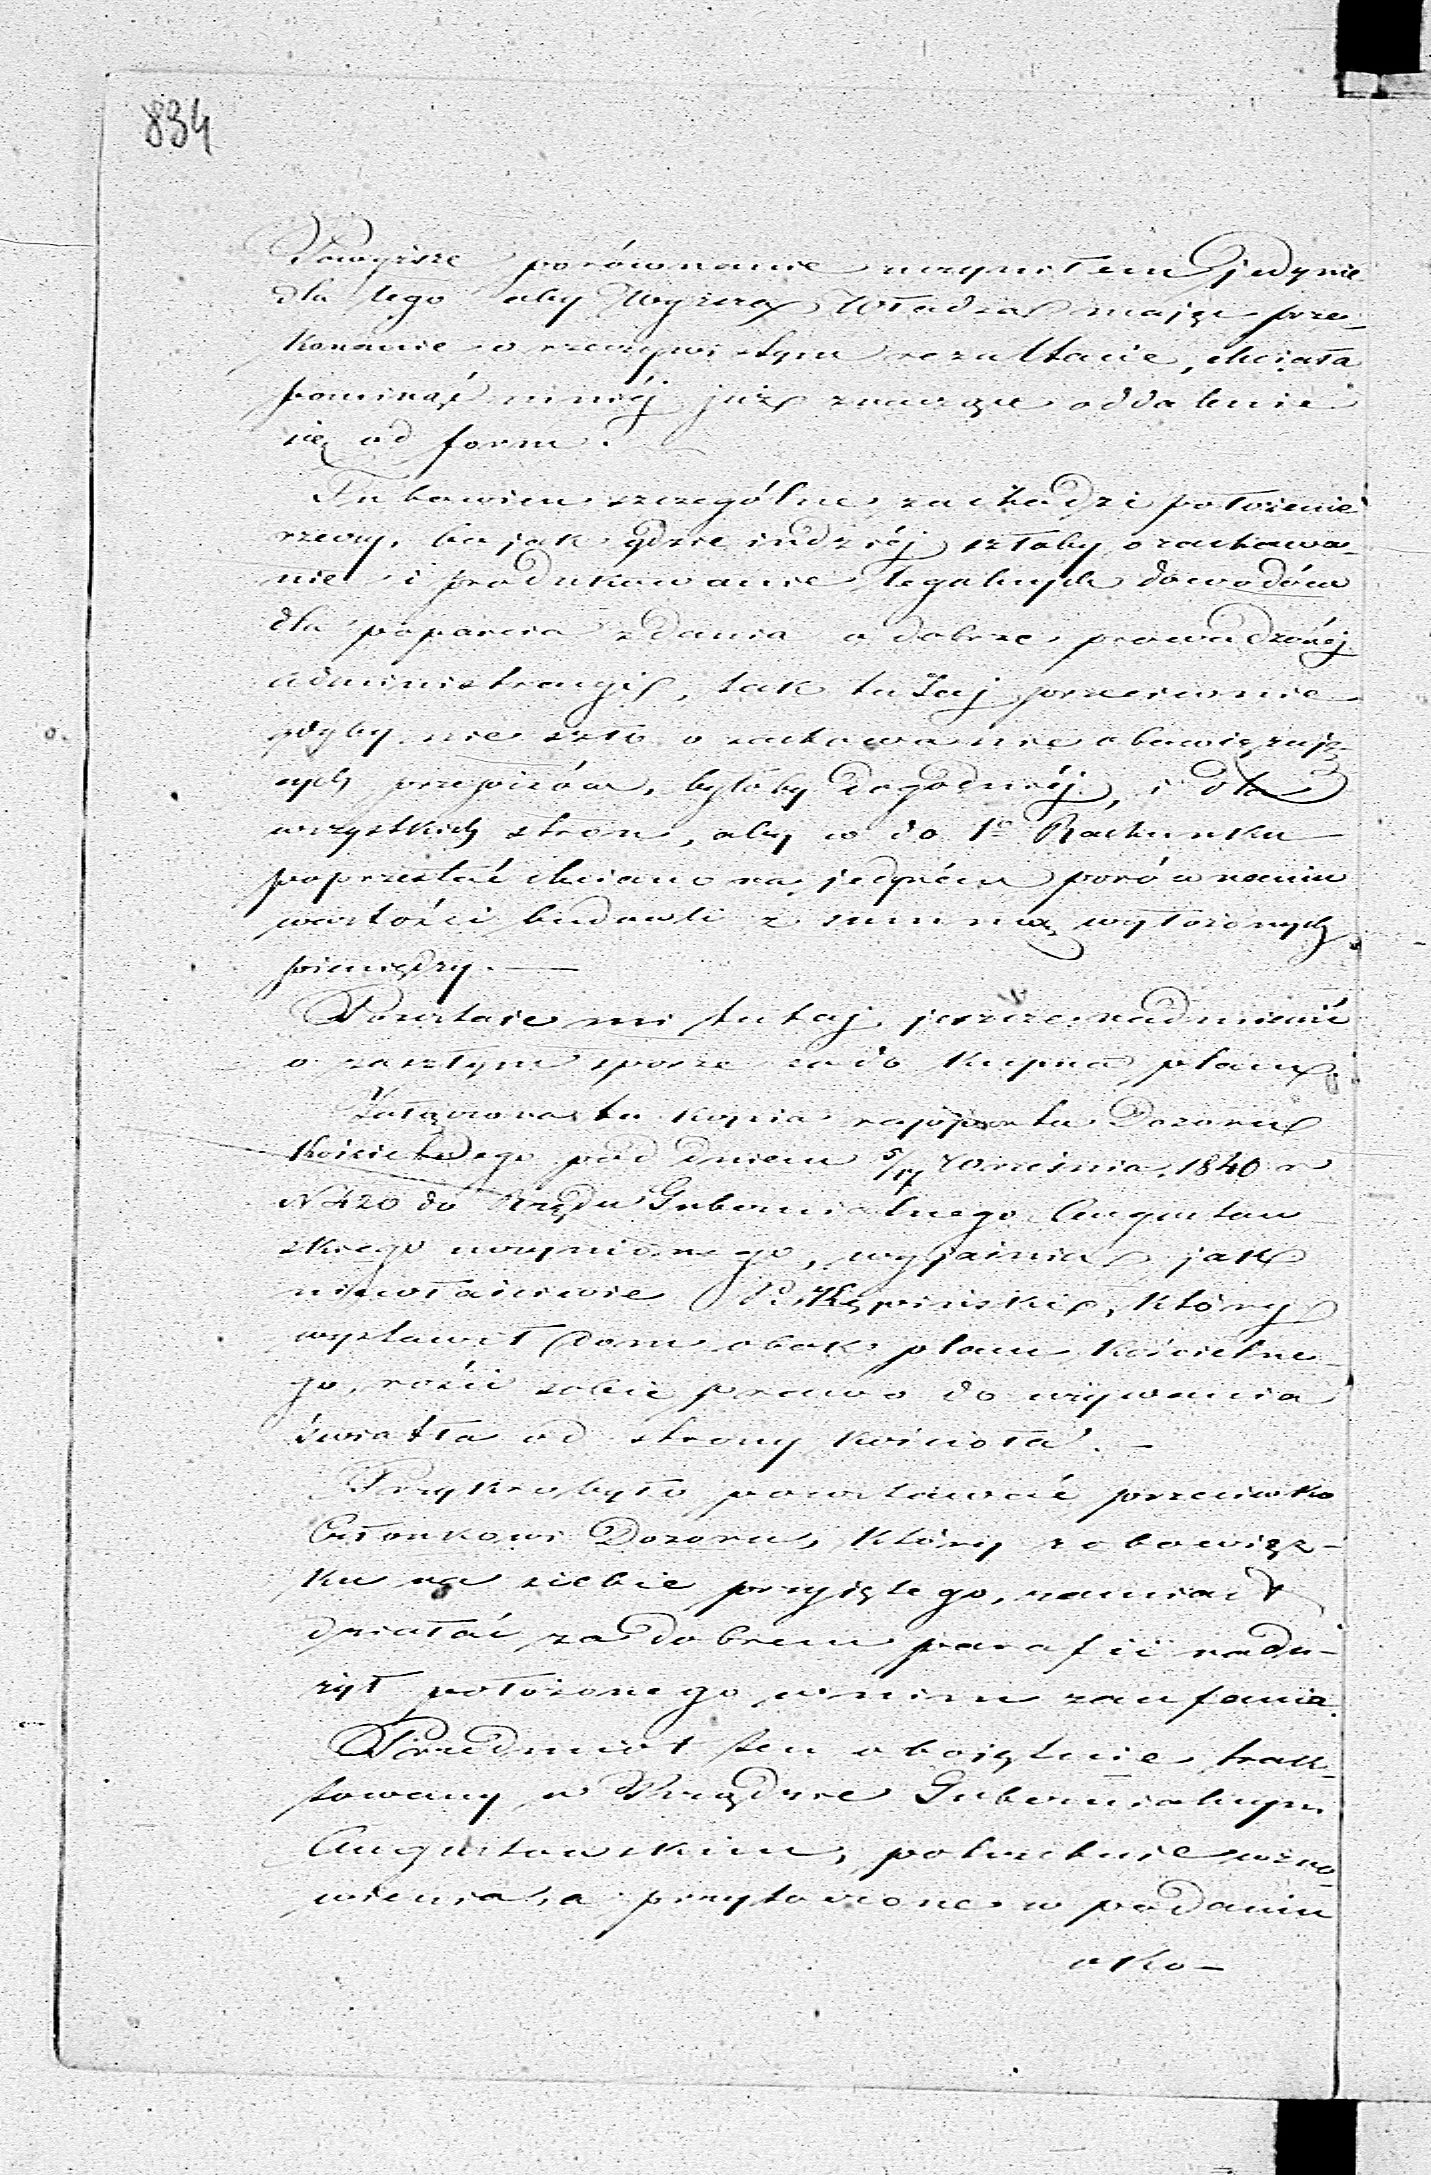 834
Powyższe porównanie uczyniłem jedynie
dla tego aby Wyższa Władza mając prze-
konanie o rzeczywistym rezultacie, chciała
pominąć mniéj już znaczące oddalenie
się od form.
Tu bowiem szczególne zachodzi położenie
rzeczy, bo jak gdzie indziéj szłoby o zachowa-
nie i produkowanie legalnych dowodów
dla poparcia zdania o dobrze prowadzonéj
administracyi, tak tutaj przeciwnie
gdyby nie szło o zachowanie obowiązują-
cych przepisów, byłoby dogodniéj, i dla
wszystkich stron, aby co do 1o Rachunku
poprzestać chciano na jedyném porównaniu
wartości budowli z summą wyłożonych
pieniędzy.—
Pozostaje mi tutaj jeszcze nadmienić
o zaszłym sporze co do kupna placu.
Załączona tu kopia rapportu Dozoru
Kościelnego pod dniem 5/17 Września 1840 r
N 420 do Rządu Gubernialnego Augustow-
skiego uczynionego, wyjaśnia jak
niewłaściwie P. Kępiński, który
wystawił dom obok placu kościelne-
go, rości sobie prawo do używania
światła od strony kościoła.—
Przykro było powstawać przeciwko
Członkowi Dozoru, który z obowiąz-
ku na siebie przyjętego, zamiast
działać za dobrem parafii nadu-
żył położonego w nim zaufania.
Przedmiot ten obojętnie trak-
towany w Rządzie Gubernialnym
Augustowskim, potrzebuje wzno-
wienia, a przytoczone w podaniu
oko-